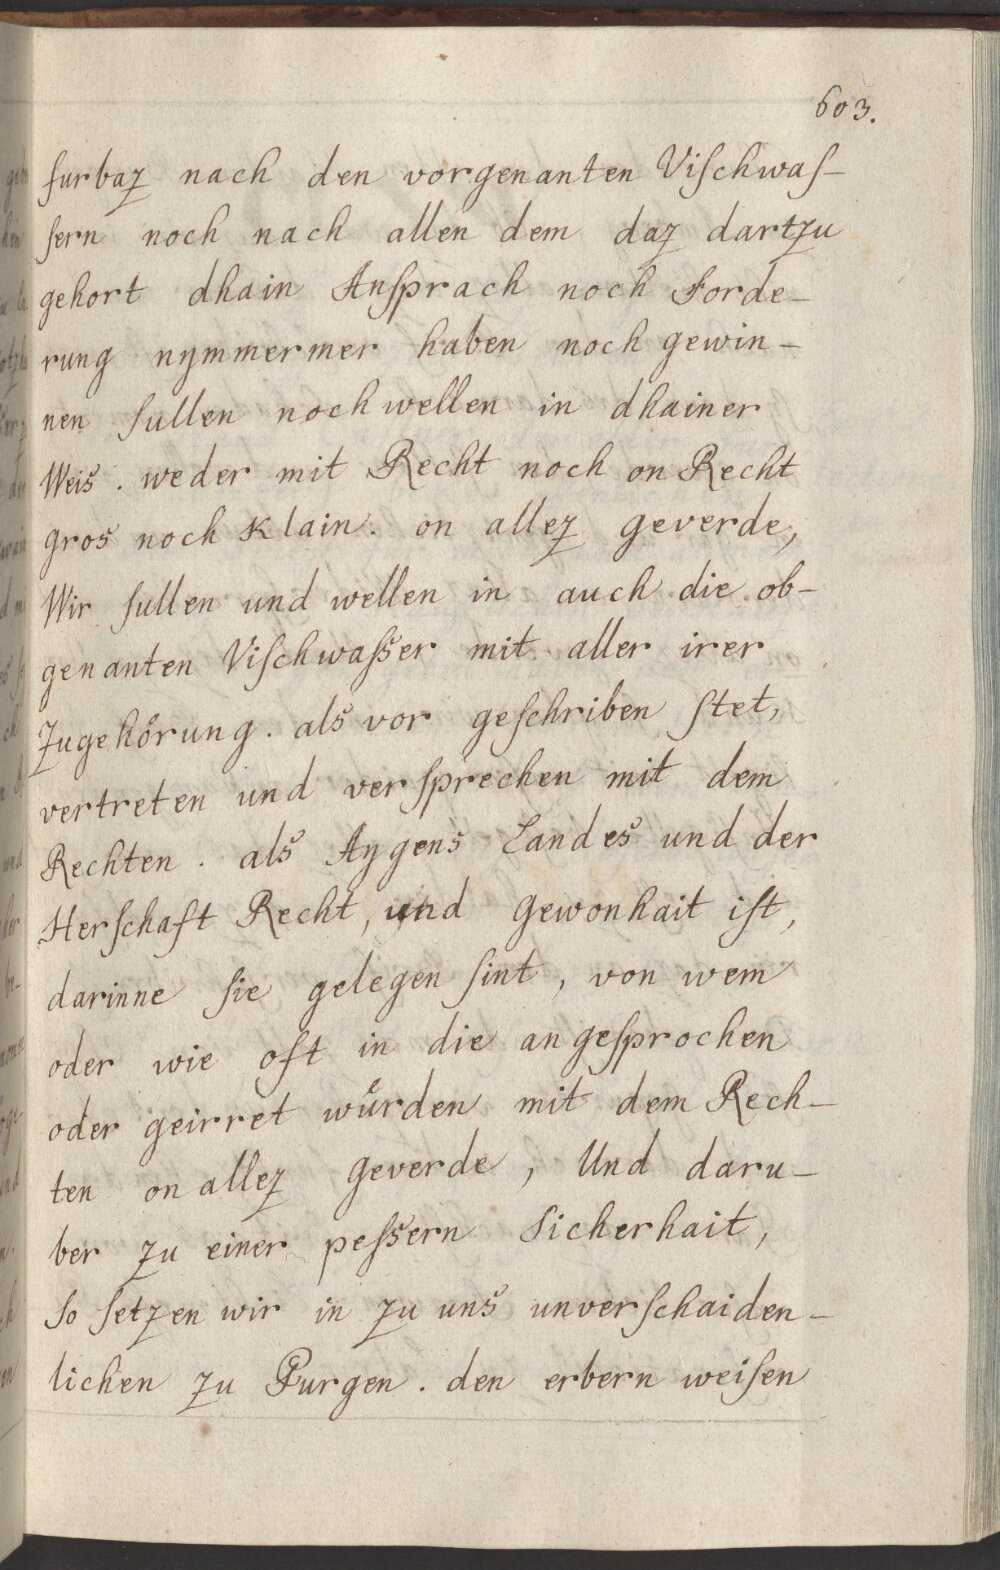 603.
furbaz nach den vorgenanten Vischwas-
sern noch nach allen dem daz dartzu
gehort dhain Ansprach noch Forde-
rung nymmermer haben noch gewin-
nen sullen noch wellen in dhainer
Weis. weder mit Recht noch on Recht
gros noch Klain. on allez geverde,
Wir sullen und wellen in auch die ob-
genanten Vischwasser mit aller irer
Zugehörung. als vor geschriben stet,
vertreten und versprechen mit dem
Rechten. als Aygens Landes und der
Herschaft Recht, und Gewonhait ist,
darinne sie gelegen sint, von wem
oder wie oft in die angesprochen
oder geirret wuͤrden mit dem Rech-
ten on allez geverde, Und daru-
ber zu einer pessern Sicherhait,
so setzen wir in zu uns unverschaiden-
lichen zu Purgen. den erbern weisen